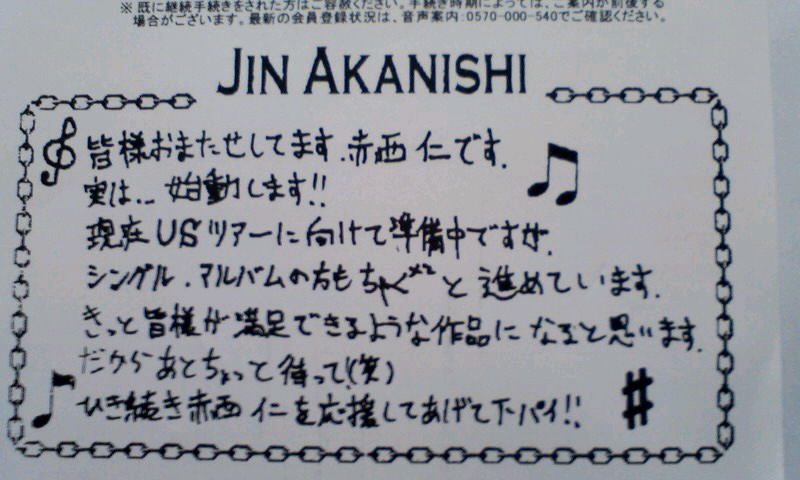 ※ 既に継続手続きをされた方はご容赦ください。手続き時期によっては、ご案内が前後する
場合がございます。最新の会員登録状況は、音声案内:0570-000-540でご確認ください。
JIN AKANISHI
皆様おまたせしてます、赤西 仁です。
実は… 始動します!!
現在USツアーに向けて準備中ですせ.
シングル、アルバムの方もちゃく×2と進めています。
きっと皆様が満足できるような作品になると思います。
だからあとちょっと待って!(笑)
ひき続き赤西 仁を応援してあげて下パイ!!